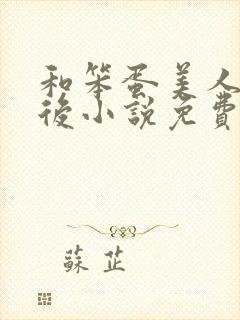 和笨蛋美人
後小說免費
蘇芷